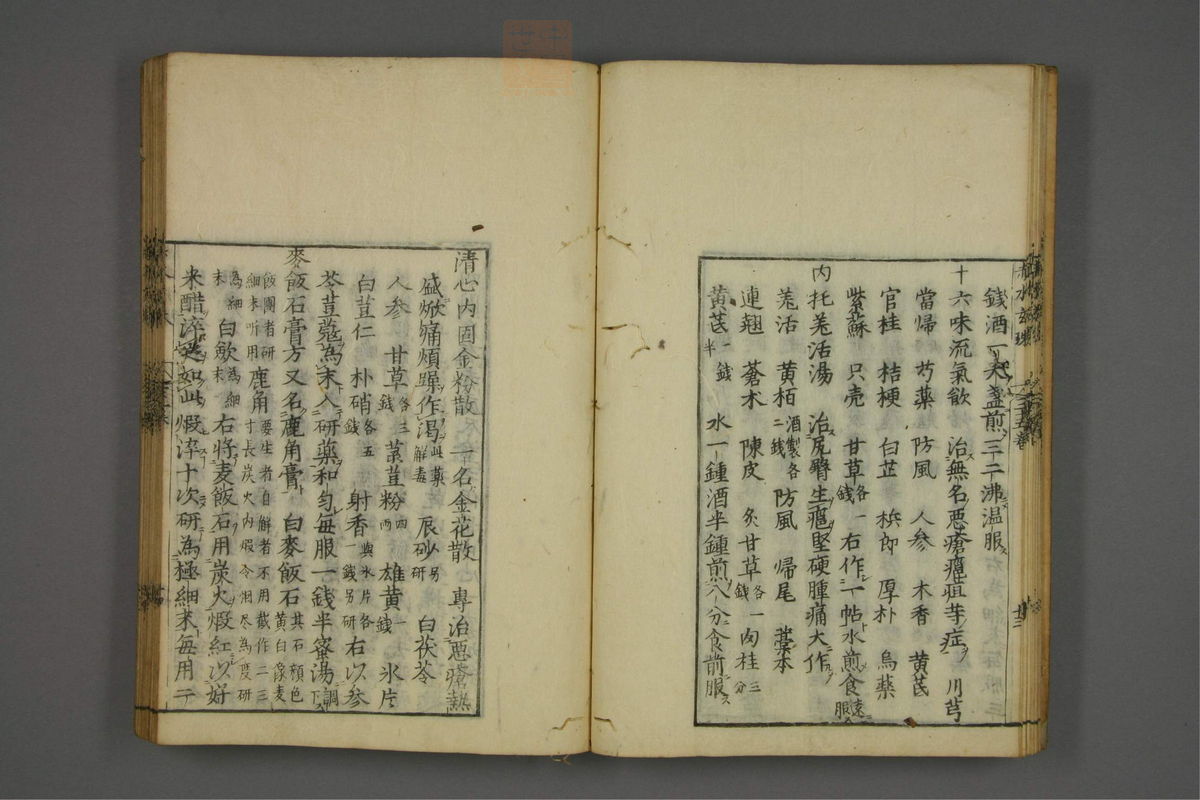 錢酒一大盞煎三二沸温服
十六味流氣飲　治無名悪瘡癰疽等症　川芎
當歸　芍藥　防風　人參　木香　黄茋
官桂　桔梗　白芷　梹郎　厚朴　烏藥
紫蘇　只壳　甘草各一錢　右作一帖水煎食遠服
内托羌活湯　治尻臀生癰堅硬腫痛大作
羌活　黄栢酒製各二錢　防風　歸尾　藁本
連翹　蒼朮　陳皮　炙甘草各一錢　肉桂三分
黄茋一錢半　水一鍾酒半鍾煎八分食前服
清心内固金粉散　一名金花散　專治悪瘡熱
盛焮痛煩躁作渴此藥解毒　辰砂另研　白茯苓
人參　甘草各三錢　菉荳粉四兩　雄黄一錢　氷片
白荳仁　朴硝各五錢　射香與氷片各一錢另研　右以參
苓荳蔻為末入研藥和匀每服一錢半蜜湯調下
麥飯石膏方又名鹿角膏　白麥飯石其石顔色黄白像麦
飯團者研細末听用　鹿角要生者自解者不用截作二三寸長炭火内煆令烟尽為度研
為細末　白歛為細末　右将麦飯石用炭火煆紅以好
米醋淬之如此煆淬十次研為極細末每用二